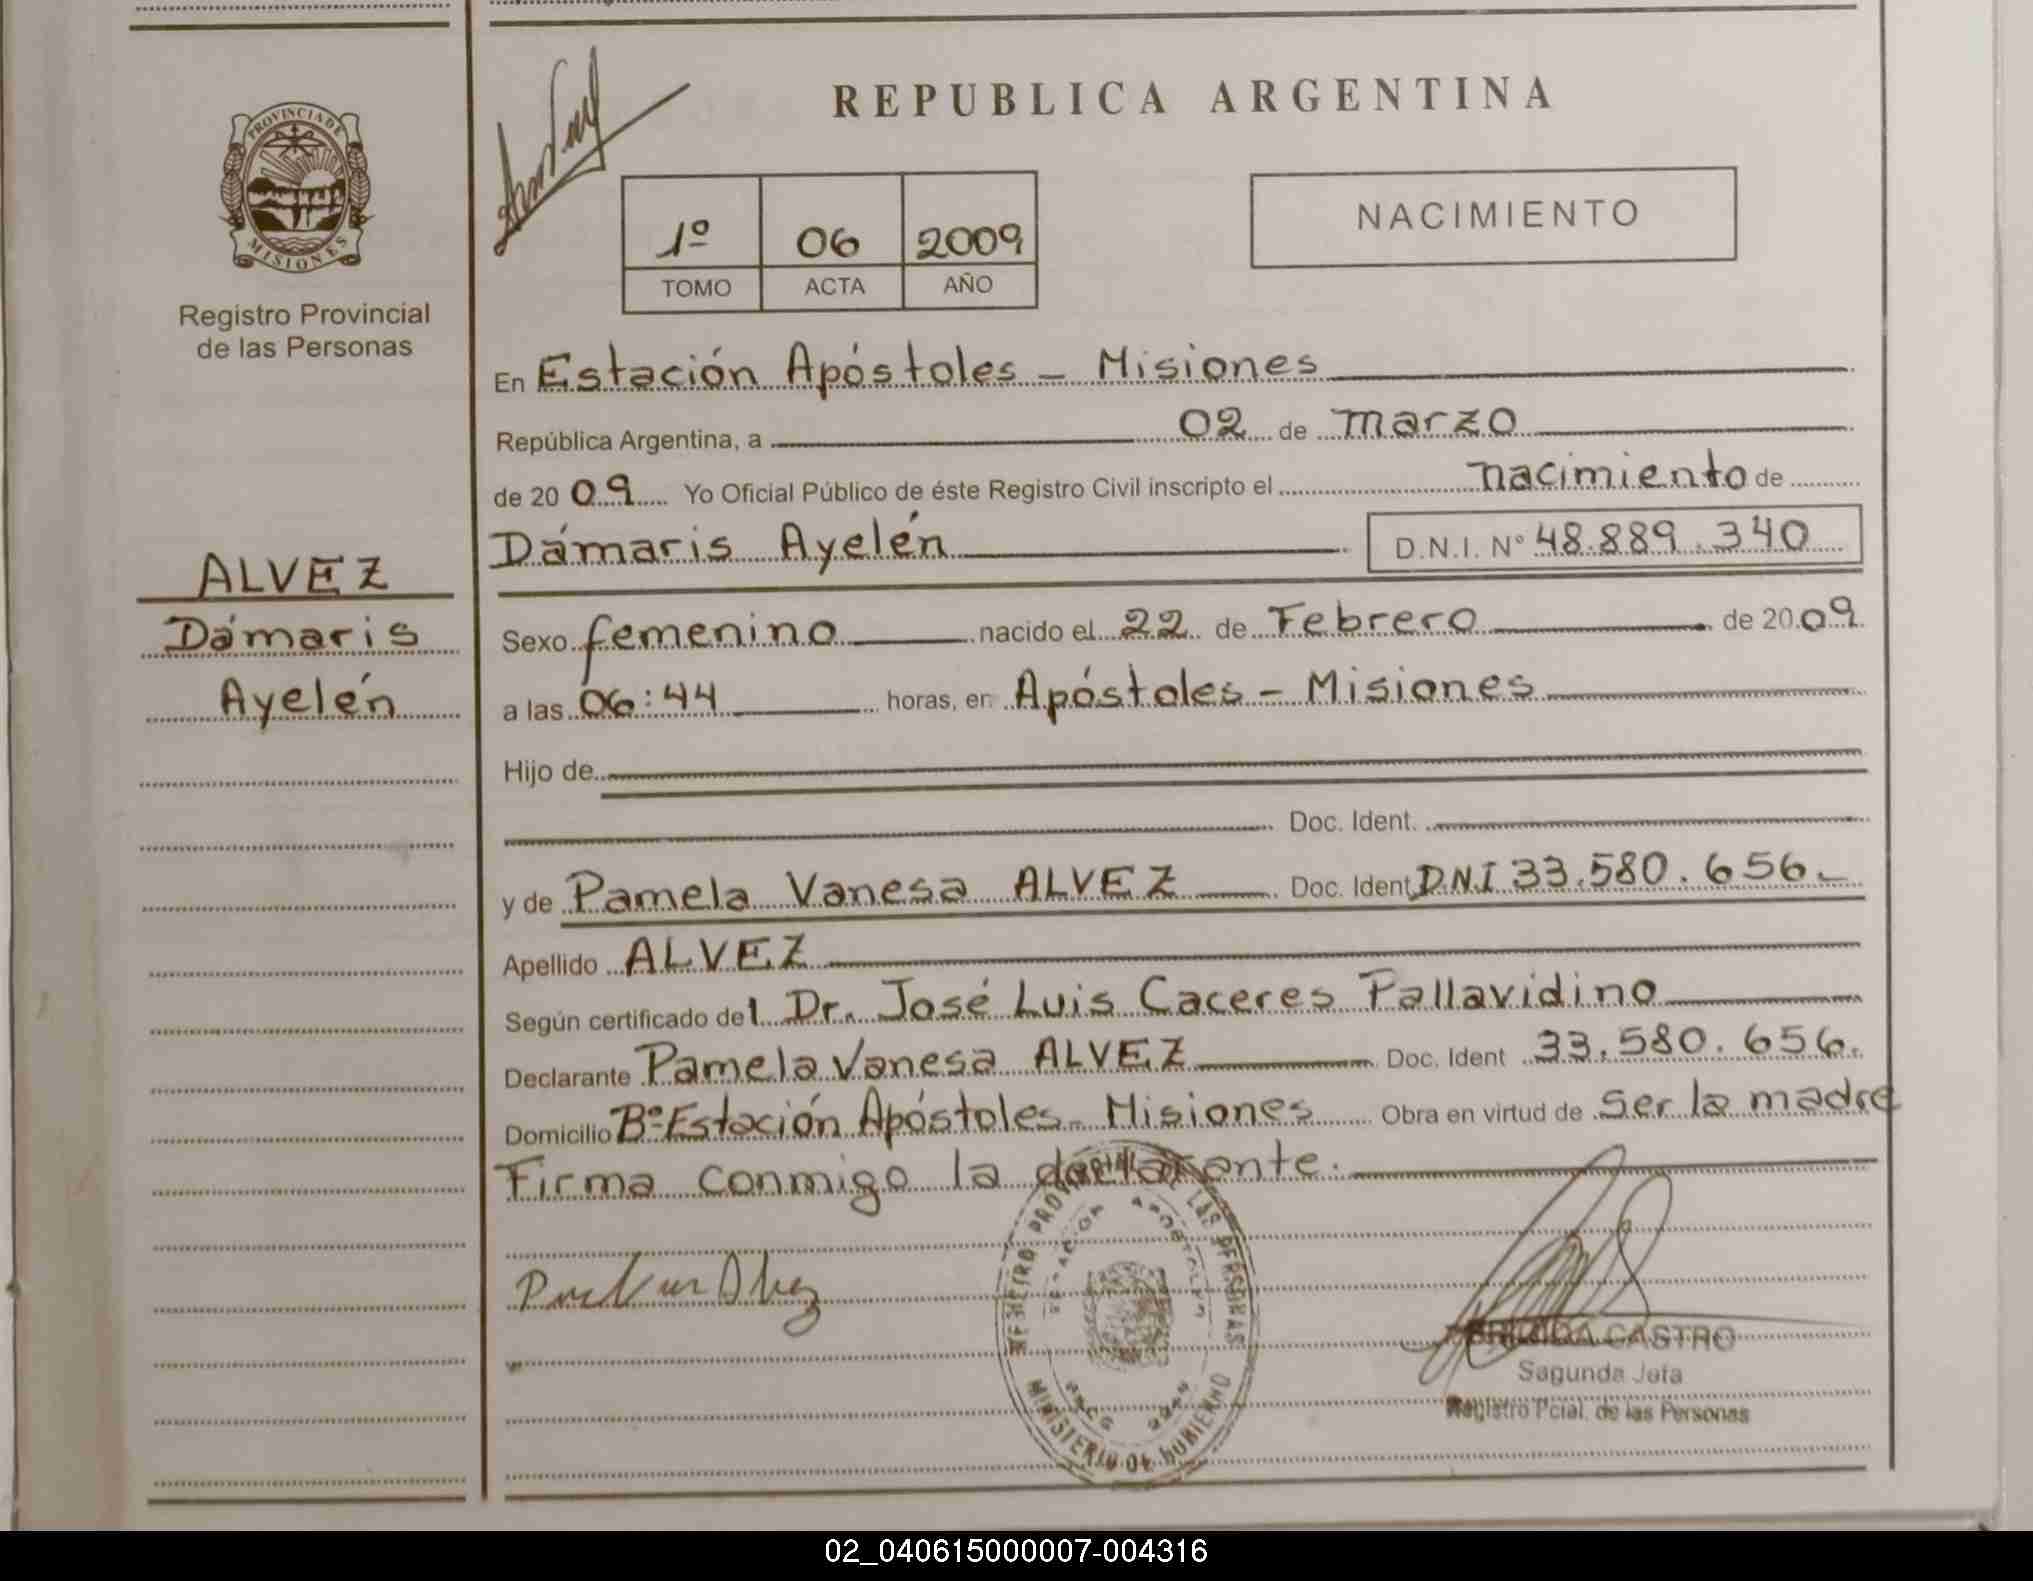 PROVINCIA DE
MISIONES
Registro Provincial
de las Personas
ALVEZ
Dámaris
Ayelén
REPUBLICA ARGENTINA
1º 06 2009
TOMO ACTA AÑO
NACIMIENTO
En Estación Apóstoles - Misiones
República Argentina, a 02 de marzo
de 20 09 Yo Oficial Público de éste Registro Civil inscripto el nacimiento de
Dámaris Ayelén D.N.I. Nº 48.889.340
Sexo femenino nacido el 22 de Febrero de 20 09
a las 06:44 horas, en Apóstoles - Misiones
Hijo de
Doc. Ident.
y de Pamela Vanesa ALVEZ Doc. Ident DNI 33.580.656.-
Apellido ALVEZ
Según certificado del Dr. José Luis Caceres Pallavidino
Declarante Pamela Vanesa ALVEZ Doc. Ident 33.580.656.
Domicilio Bº Estación Apóstoles - Misiones Obra en virtud de Ser la madre
Firma conmigo la declarante.
REGISTRO LAS PERSONAS
ESTACION APOSTOLES
MINISTERIO DE GOBIERNO
CASTRO
Segunda Jefa
Registro Pcial. de las Personas
02_040615000007-004316